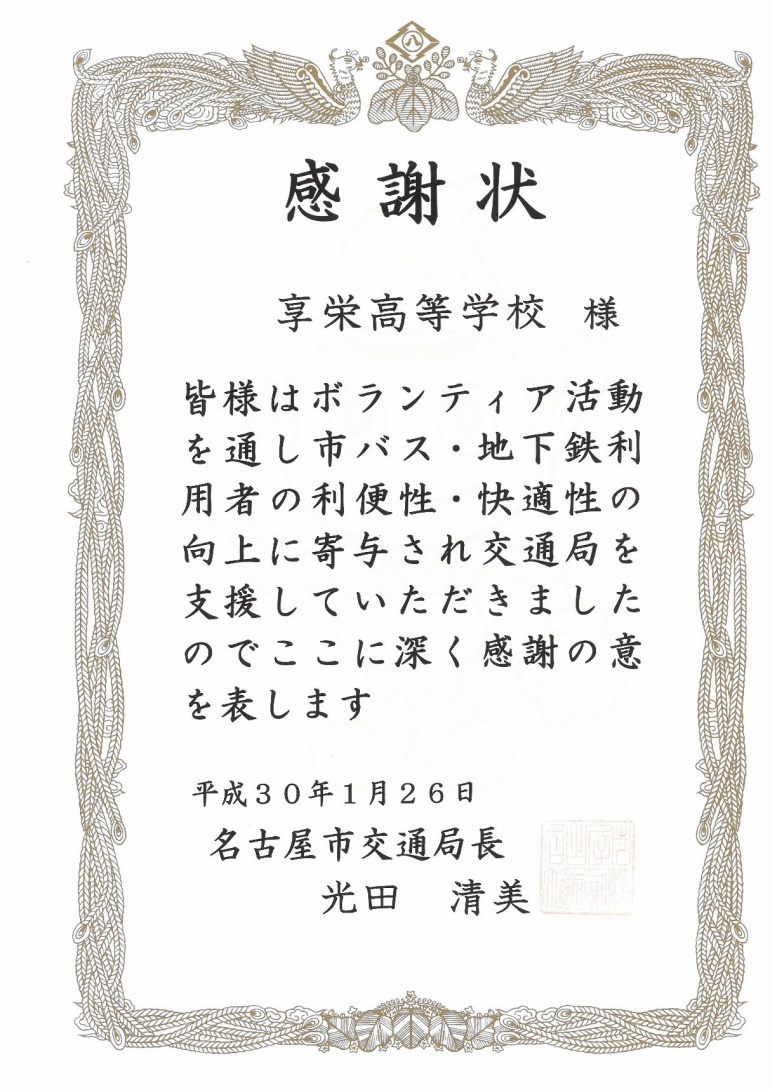 八
感謝状
享栄高等学校 様
皆様はボランティア活動
を通し市バス・地下鉄利
用者の利便性・快適性の
向上に寄与され交通局を
支援していただきました
のでここに深く感謝の意
を表します
平成30年1月26日
名古屋市交通局長
光田 清美